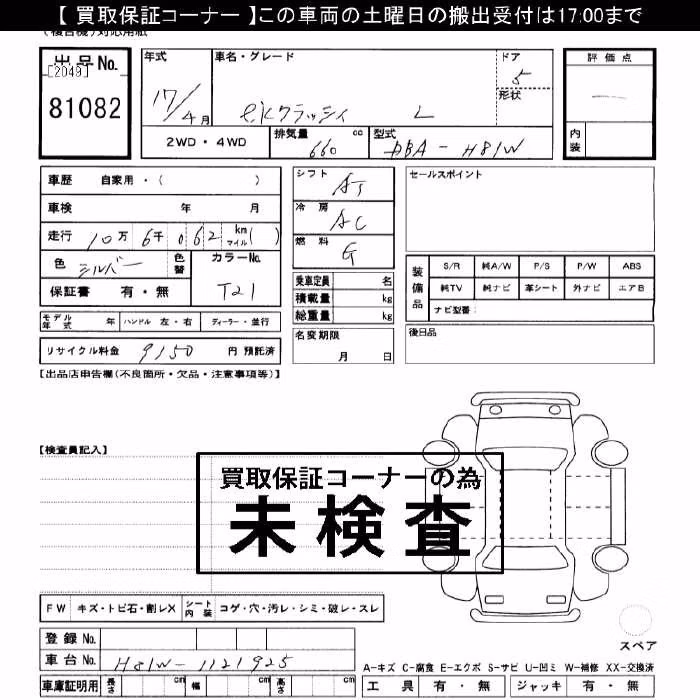 【 買取保証コーナー 】この車両の土曜日の搬出受付は17:00まで
出品No.
[2049]
81082
年式
17/4月
車名・グレード
ekクラッシィ L
ドア
5
形状
評価点
—
内装
2WD・4WD
排気量 cc
660
型式
DBA-H81W
車歴 自家用・( )
車検 年 月
走行 10万 6千 062 km マイル( )
色 シルバー
色替
カラーNo.
T21
保証書 有・無
モデル年式 年 ハンドル 左・右 ディーラー・並行
リサイクル料金 9150 円 預託済
シフト
AT
冷房
AC
燃料
G
乗車定員 名
積載量 kg
総重量 kg
名変期限
月 日
セールスポイント
装備品
S/R 純A/W P/S P/W ABS
純TV 純ナビ 革シート 外ナビ エアB
ナビ型番:
後日品
【出品店申告欄(不良箇所・欠品・注意事項等)】
【検査員記入】
買取保証コーナーの為
未検査
FW キズ・トビ石・割レX シート内装 コゲ・穴・汚レ・シミ・破レ・スレ
登録No.
車台No. H81W-1121925
車庫証明用 長さ cm 幅 cm 高さ cm
スペア
A-キズ C-腐食 E-エクボ S-サビ U-凹ミ W-補修 XX-交換済
工具 有・無 ジャッキ 有・無